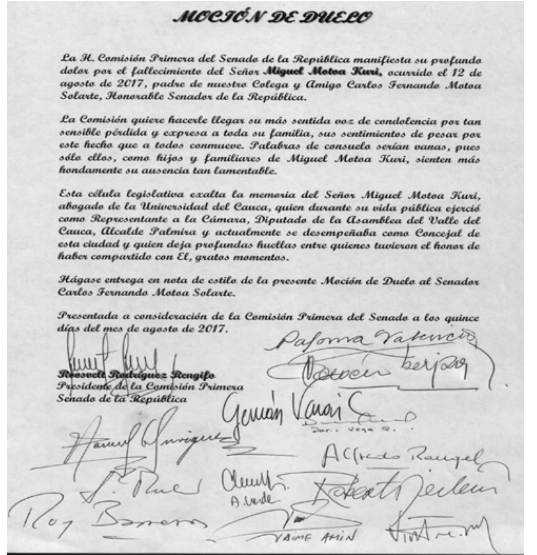 MOCIÓN DE DUELO
La H. Comisión Primera del Senado de la República manifiesta su profundo
dolor por el fallecimiento del Señor Miguel Motoa Kuri, ocurrido el 12 de
agosto de 2017, padre de nuestro Colega y Amigo Carlos Fernando Motoa
Solarte, Honorable Senador de la República.
La Comisión quiere hacerle llegar su más sentida voz de condolencia por tan
sensible pérdida y expresa a toda su familia, sus sentimientos de pesar por
este hecho que a todos conmueve. Palabras de consuelo serían vanas, pues
sólo ellos, como hijos y familiares de Miguel Motoa Kuri, sienten más
hondamente su ausencia tan lamentable.
Esta célula legislativa exalta la memoria del Señor Miguel Motoa Kuri,
abogado de la Universidad del Cauca, quien durante su vida pública ejerció
como Representante a la Cámara, Diputado de la Asamblea del Valle del
Cauca, Alcalde Palmira y actualmente se desempeñaba como Concejal de
esta ciudad y quien deja profundas huellas entre quienes tuvieron el honor de
haber compartido con El, gratos momentos.
Hágase entrega en nota de estilo de la presente Moción de Duelo al Senador
Carlos Fernando Motoa Solarte.
Presentada a consideración de la Comisión Primera del Senado a los quince
días del mes de agosto de 2017.
Paloma Valencia
Roosvelt Rodríguez Rengifo
Presidente de la Comisión Primera
Senado de la República
Germán Varón C
Alfredo Rangel
Roy Barreras
JAIME AMIN